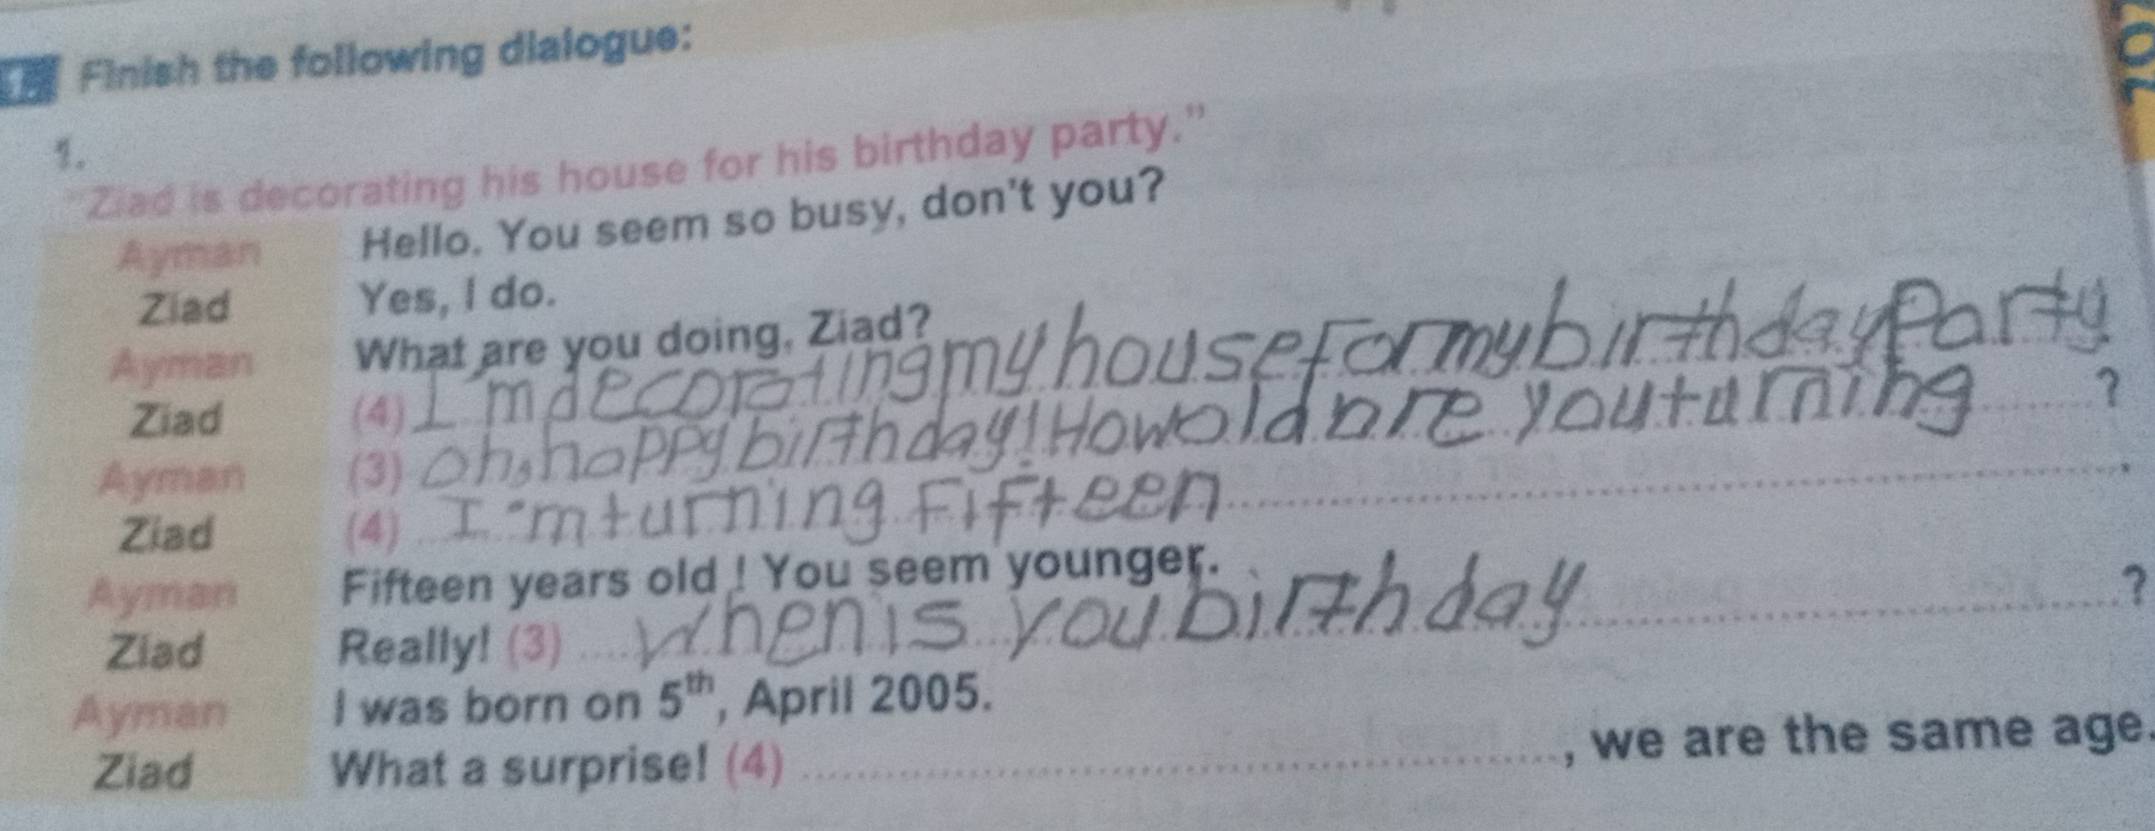 1. Finish the following dialogue:
1.
"Ziad is decorating his house for his birthday party."
Ayman Hello. You seem so busy, don't you?
Ziad Yes, I do.
Ayman What are you doing, Ziad?
Ziad (4) I m decorating my house for my birthday Party
Ayman (3) oh, happy birthday! How old are you turning ?
Ziad (4) I'm turning Fifteen .
Ayman Fifteen years old ! You seem younger.
Ziad Really! (3) When is you birthday ?
Ayman I was born on 5th, April 2005.
Ziad What a surprise! (4) , we are the same age.